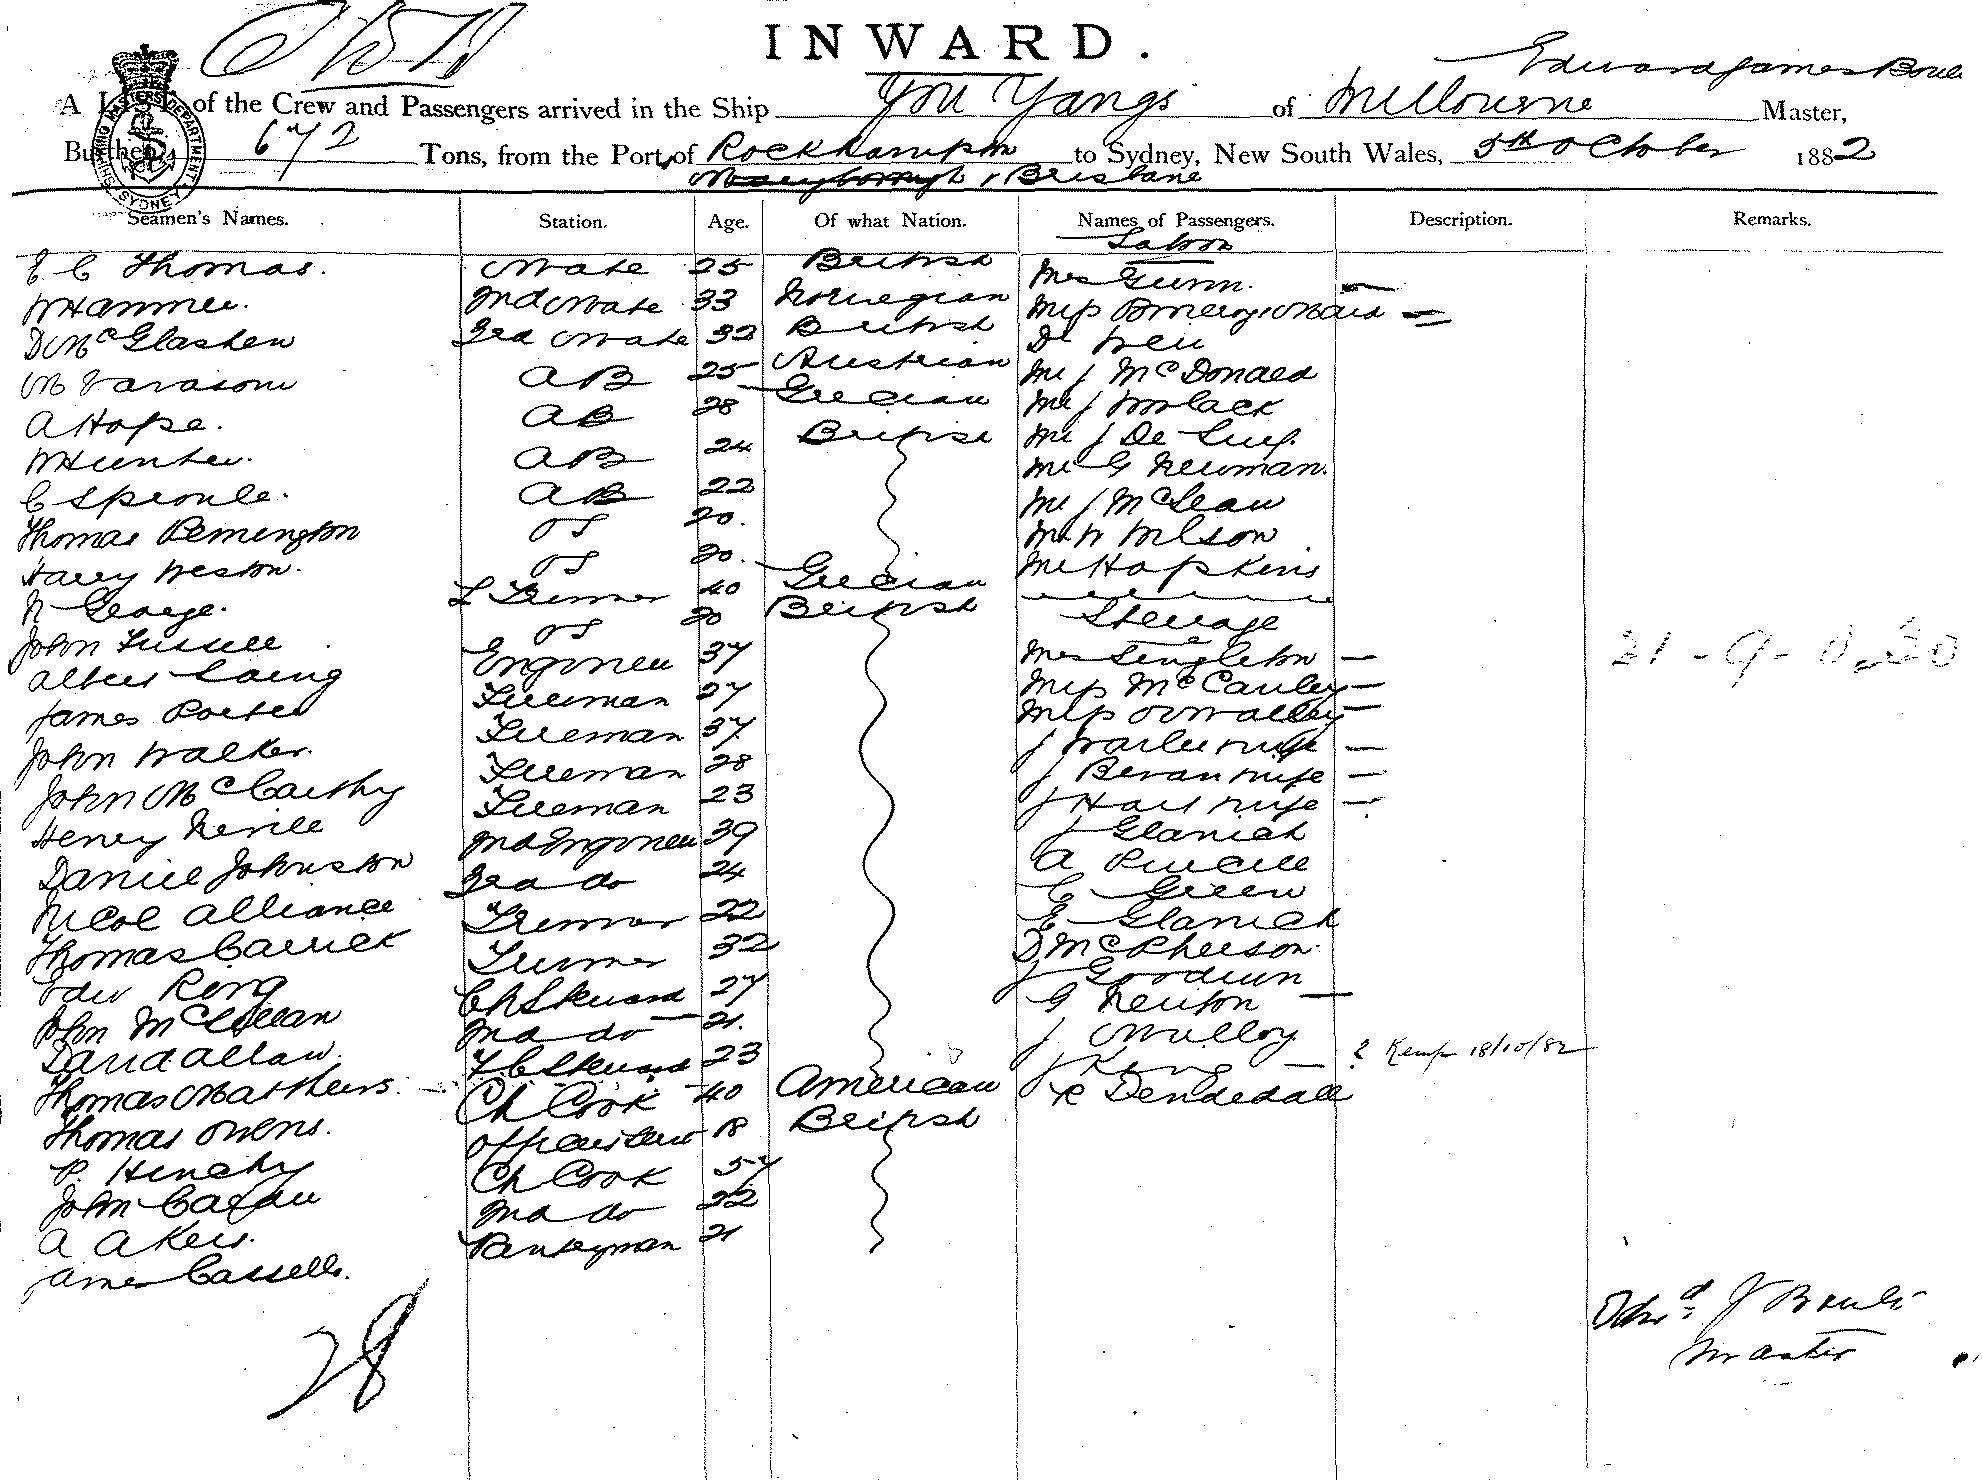 INWARD.
Edward James
A LIST of the Crew and Passengers arrived in the Ship You Yangs of Melbourne Master,
Burthen 672 Tons, from the Port of Rockhampton to Sydney, New South Wales, 5th October 1882
Maryborough & Brisbane
Seamen's Names. Station. Age. Of what Nation. Names of Passengers. Description. Remarks.
Saloon
E C Thomas. Mate 25 British Mrs Gunn. —
2nd Mate 33 Norwegian Miss
D McGlashen 3rd Mate 32 British Dr
M AB 25 Austrian Mr J McDonald
A Hope. AB 28 Grecian Mr J
W Hunter. AB 24 British Mr J De
C Sproule. AB 22 Mr G Newman.
Thomas Remington OS 20. Mr J McLean
Harry Weston. OS 20. Mr W Wilson
N George. L Trimmer 40 Grecian Mr Hopkins
John Fussell OS 20 British Steerage
Albert Laing Engineer 37 Mrs Singleton —
James Porter Fireman 27 Miss McCauley —
John Walker. Fireman 37 Miss O'Malley —
John McCarthy Fireman 28 J & wife —
Henry Nevile Fireman 23 J Bevan & wife —
Daniel Johnston 2nd Engineer 39 J Hart & wife —
Nicol Alliance 3rd do 24 J Glanich
Thomas Carrick Trimmer 22 A Purcell
Ring Trimmer 32 C Green
John McLellan Ch Steward 27 E Glanich
David Allan. 2nd do 21. D McPherson
Thomas Matthews. F C Steward 23 J Goodwin
Thomas Owens. Ch Cook 40 American G Newton —
P. Henchy 18 British J Mulloy
John Ch Cook 57 J King — ? Kemp 18/10/82
A Akers. 2nd do 22 R
James Cassells. Pantryman 21
28
Edwd J
Master